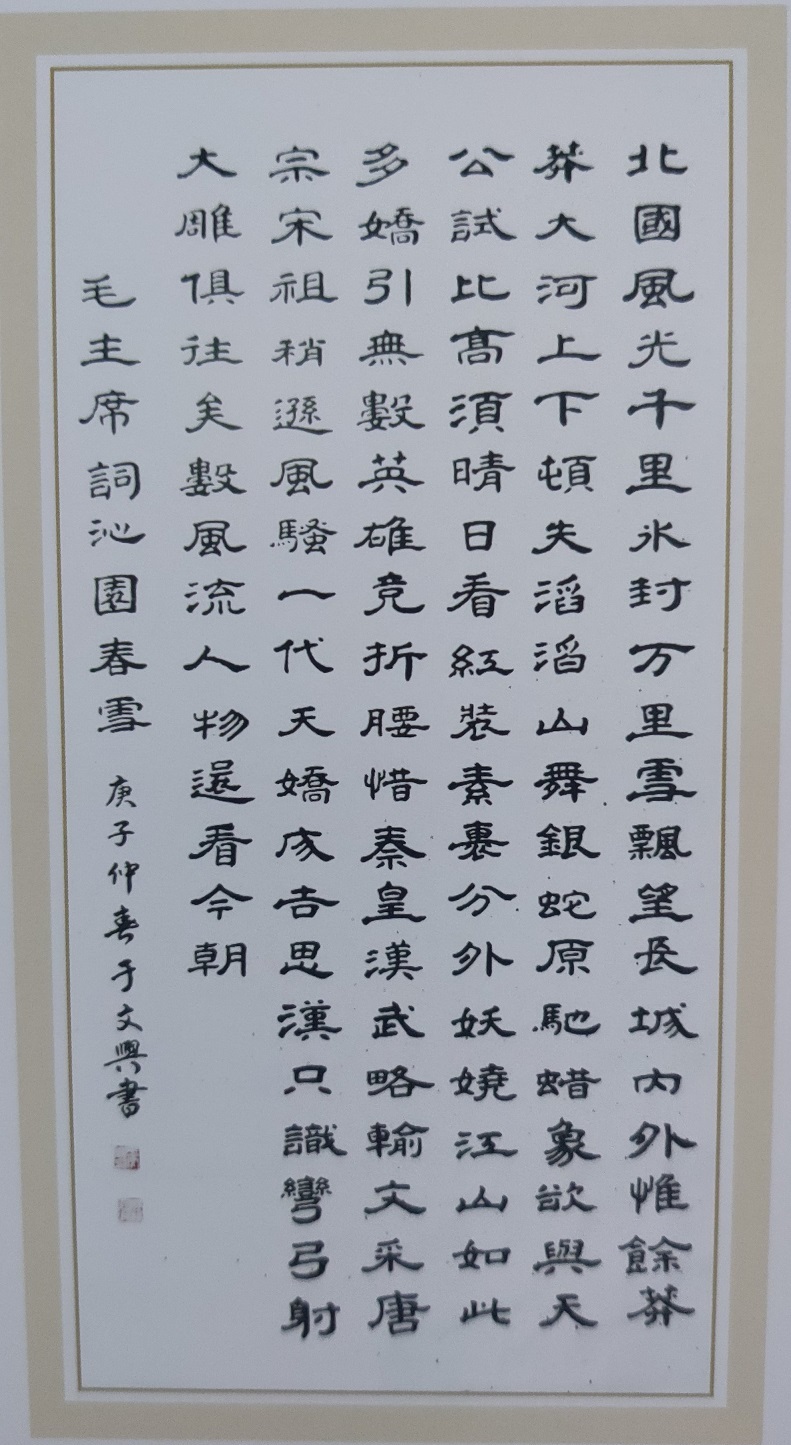 北國風光千里氷封万里雪飄望長城内外惟餘莽
莽大河上下頓失滔滔山舞銀蛇原馳蜡象欲與天
公試比髙須晴日看紅裝素裹分外妖嬈江山如此
多嬌引無數英雄竞折腰惜秦皇漢武略輸文采唐
宗宋祖稍遜風騷一代天嬌成吉思漢只識彎弓射
大雕俱往矣數風流人物還看今朝
毛主席詞沁園春雪
庚子仲春于文興書